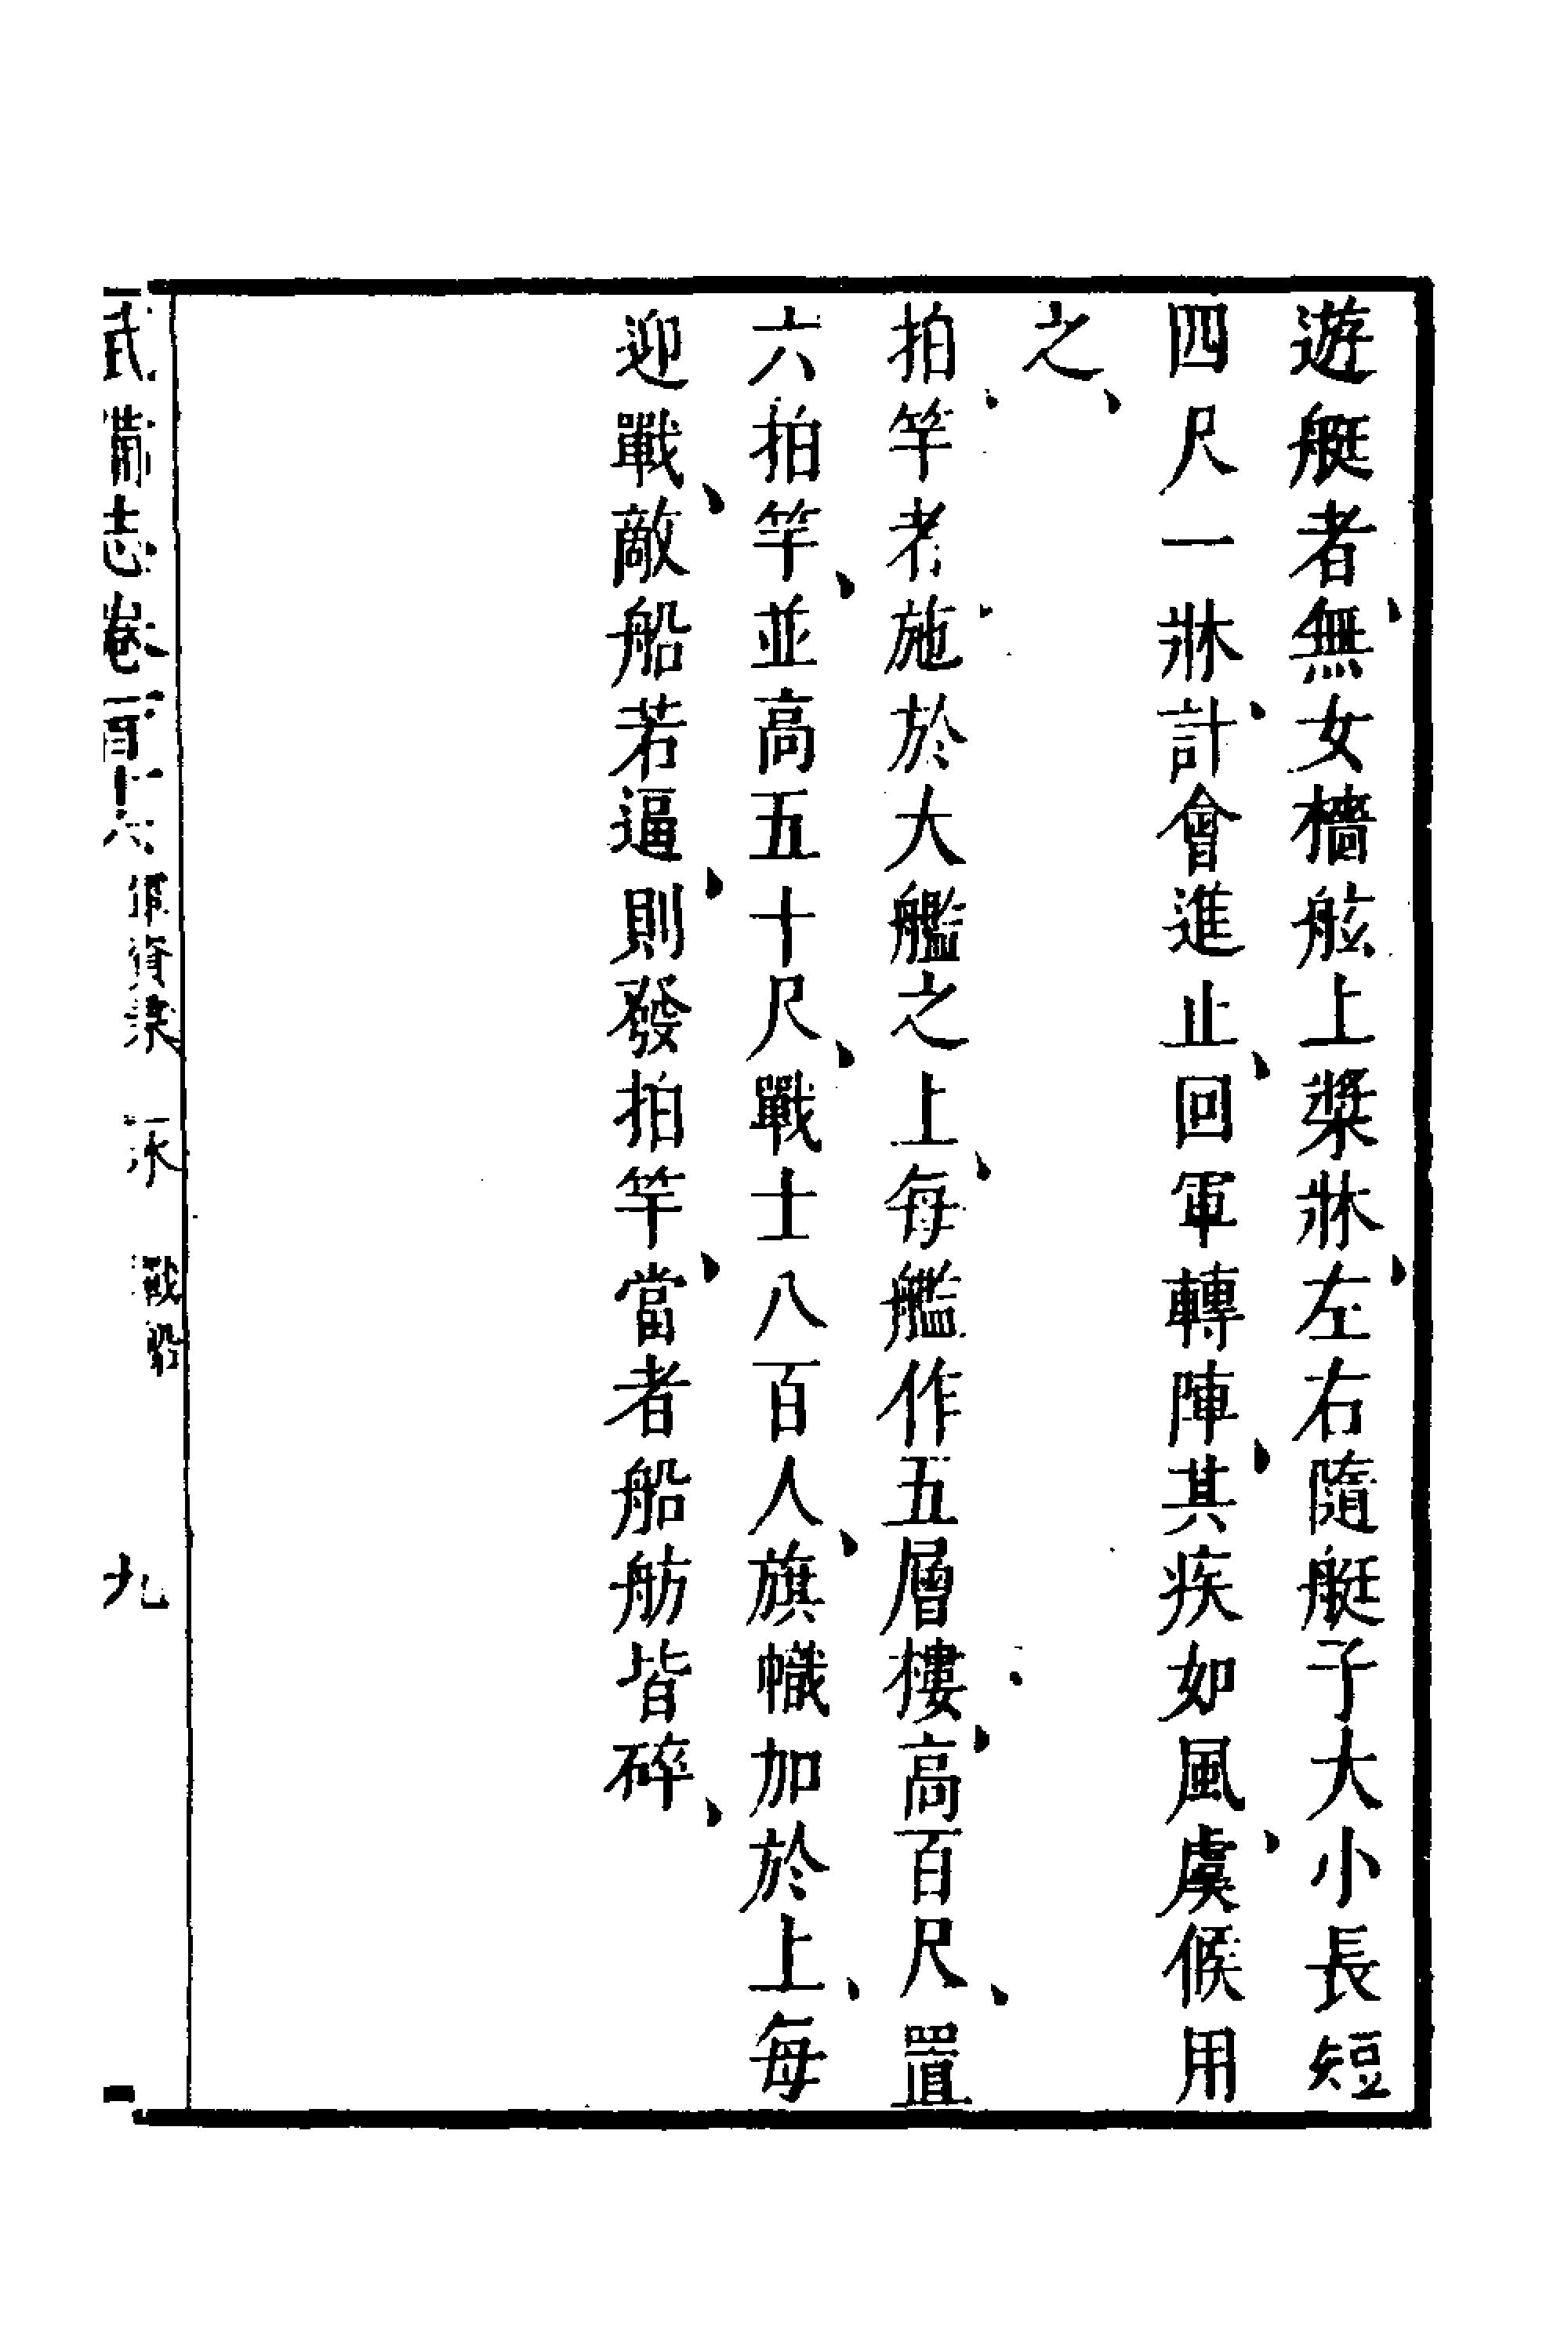 遊艇者、無女檣舷上槳牀、左右隨艇子大小長短
四尺一牀、計會進止、回軍轉陣、其疾如風、虞候用
之、
拍竿者、施於大艦之上、每艦作五層樓、高百尺、置
六拍竿、並高五十尺、戰士八百人、旗幟加於上、每
迎戰、敵船若逼、則發拍竿、當者船舫皆碎、
武備志卷百十六 軍資乘 水 戰船 九